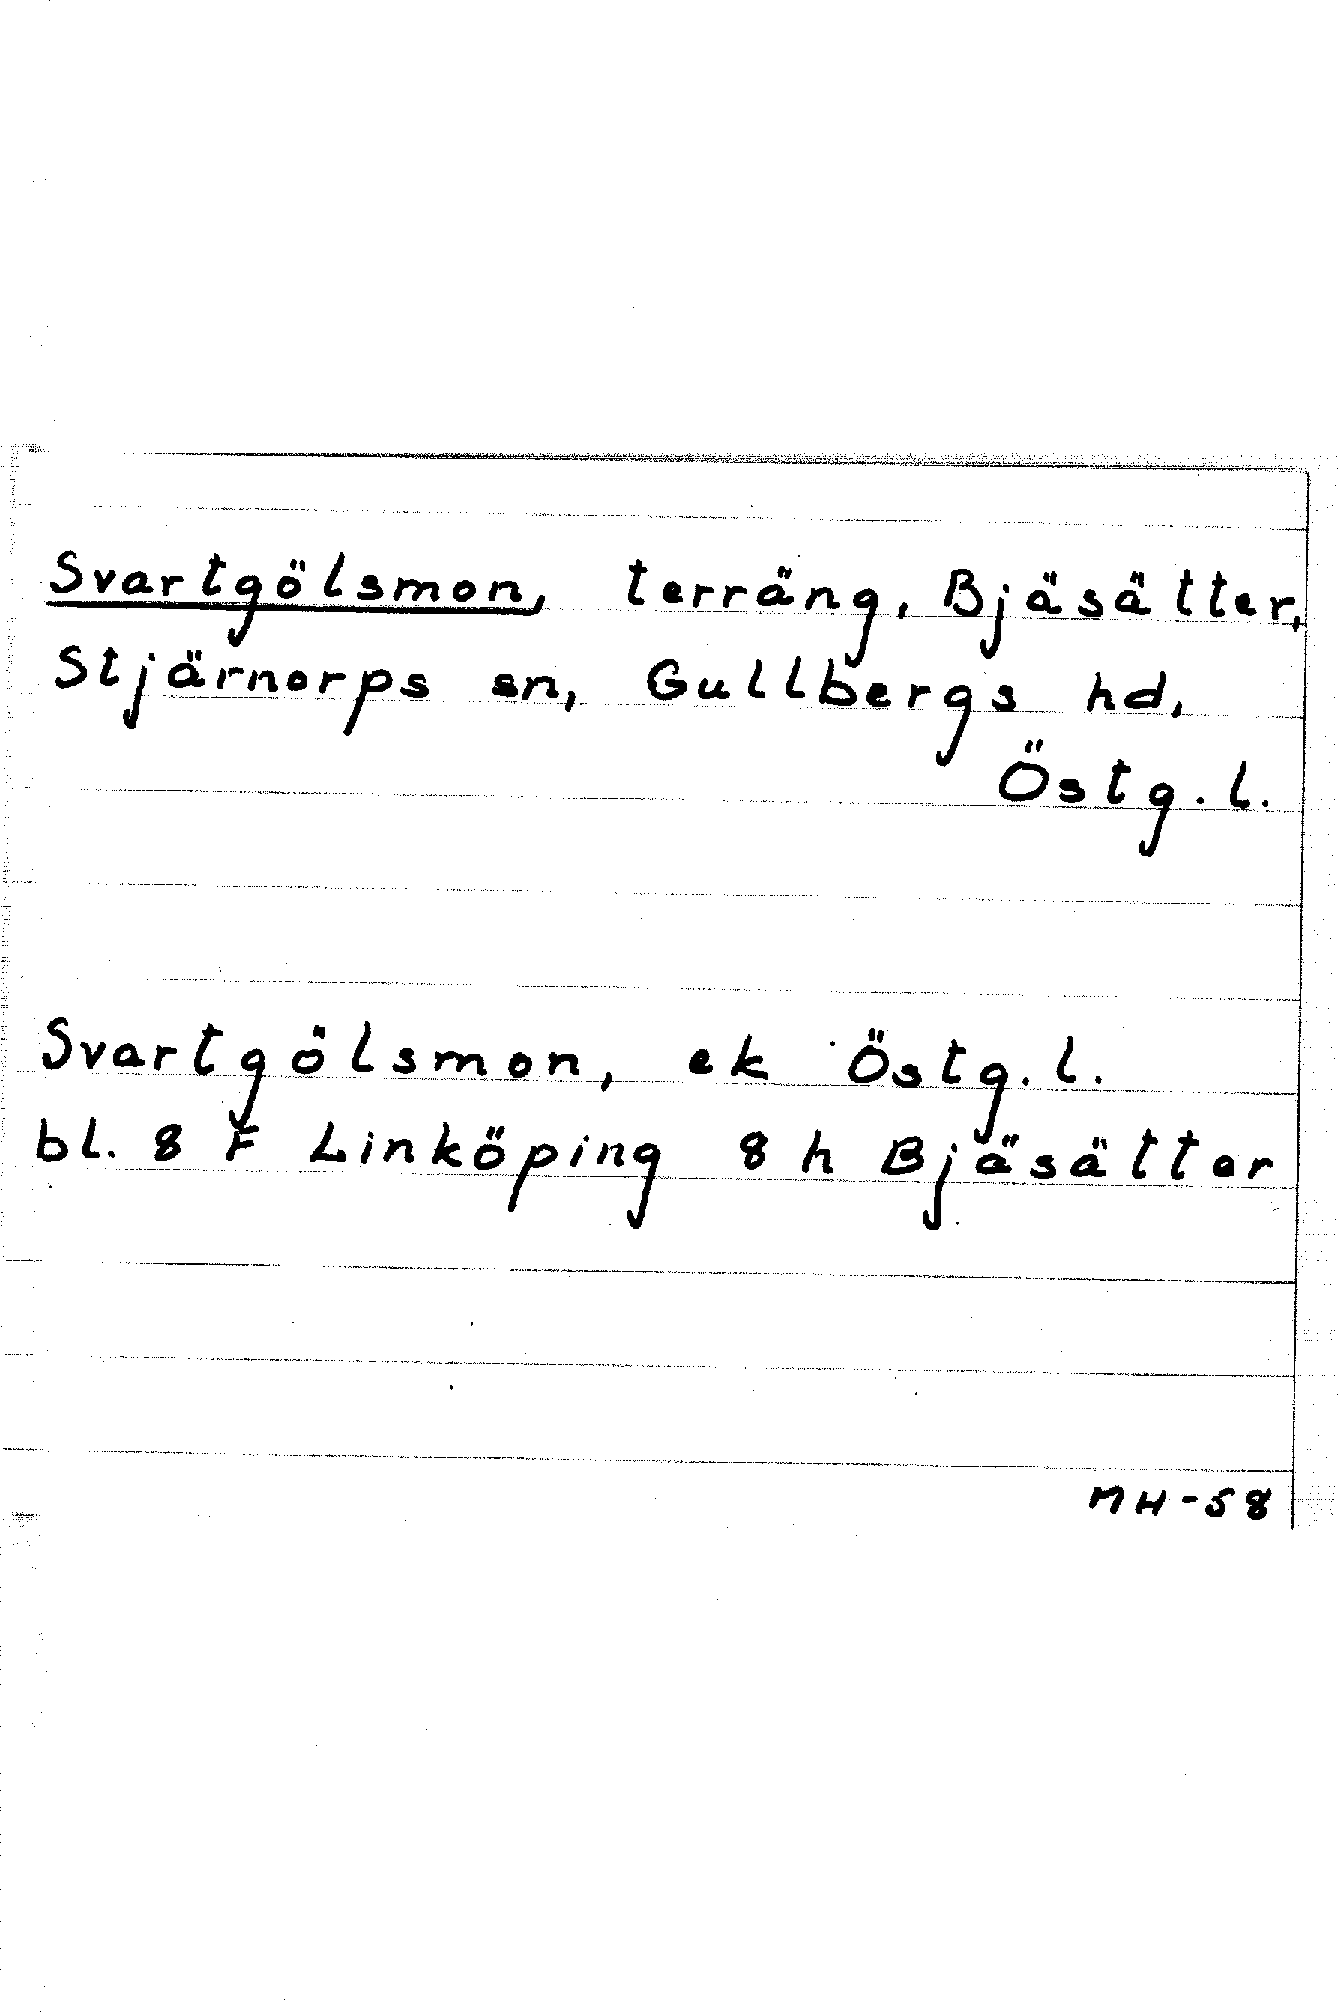 Svartgölsmon, terräng, Bjäsätter,
Stjärnorps sn, Gullbergs hd,
Östg. l.
Svartgölsmon, ek Östg. l.
bl. 8 F Linköping 8 h Bjäsätter
MH-58